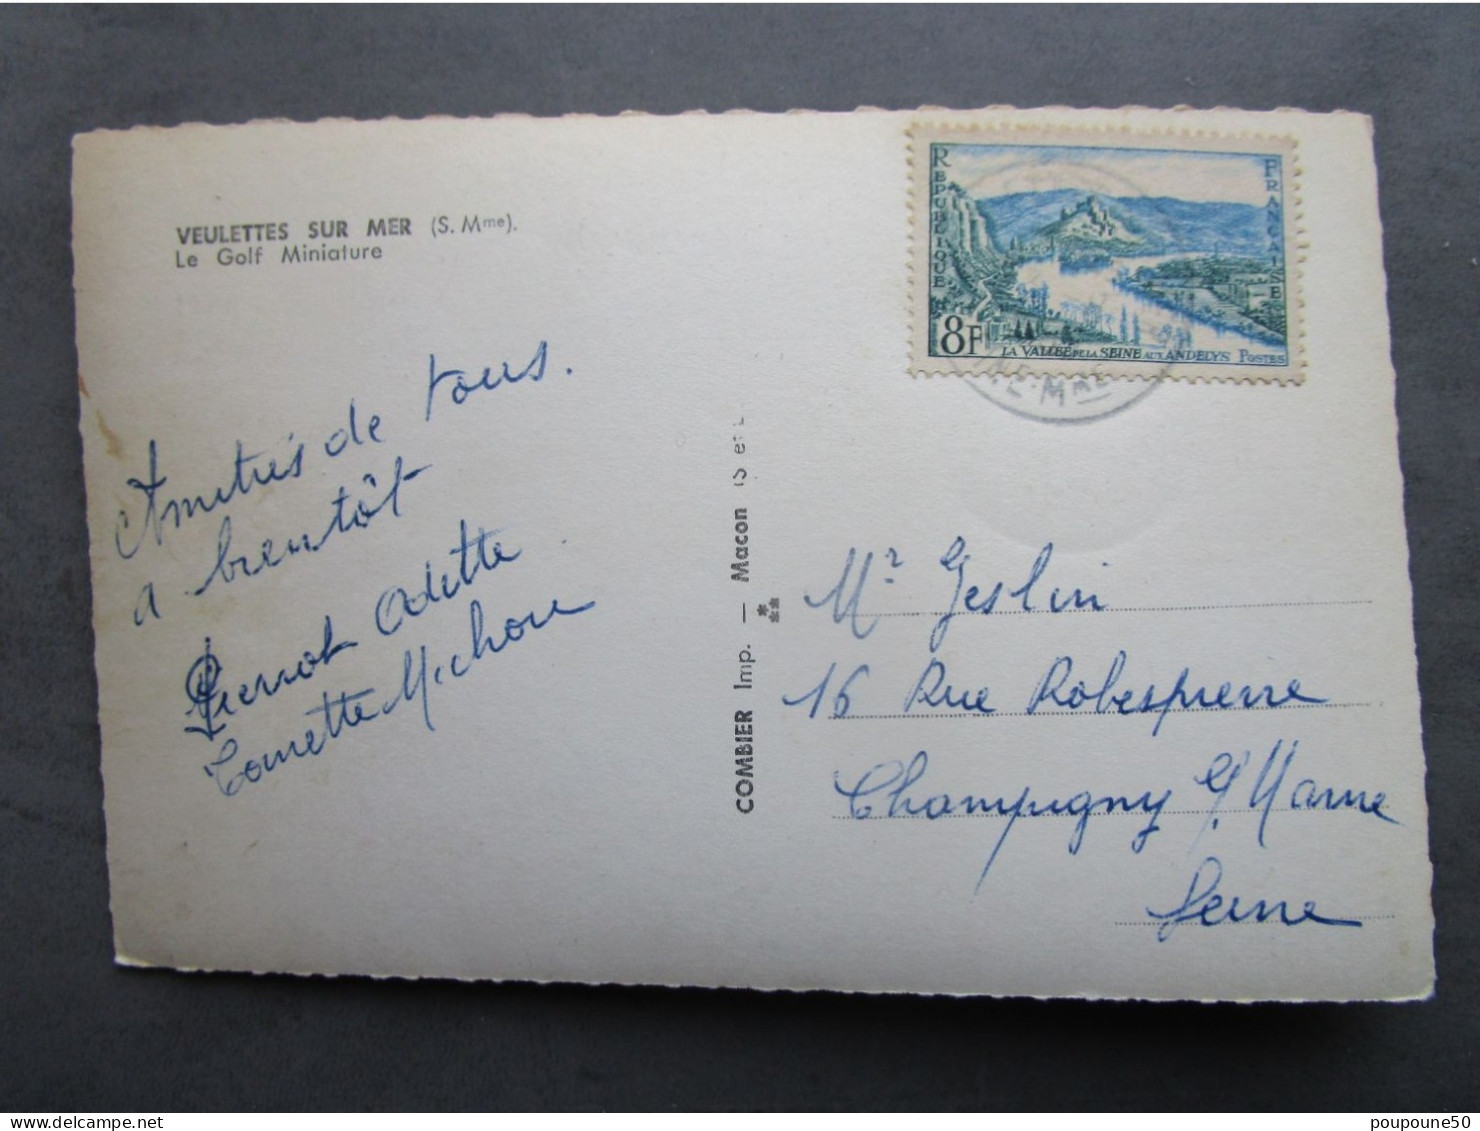 VEULETTES SUR MER (S. Mme).
Le Golf Miniature
Amitiés de tous.
a bientôt
Pierrot Odette
Michou
COMBIER Imp. — Macon (S et L
RÉPUBLIQUE FRANÇAISE
8F
LA VALLÉE DE LA SEINE AUX ANDELYS POSTES
NE-Mme
Mr Geslin
16 Rue Robespierre
Champigny s/ Marne
Seine
poupoune50